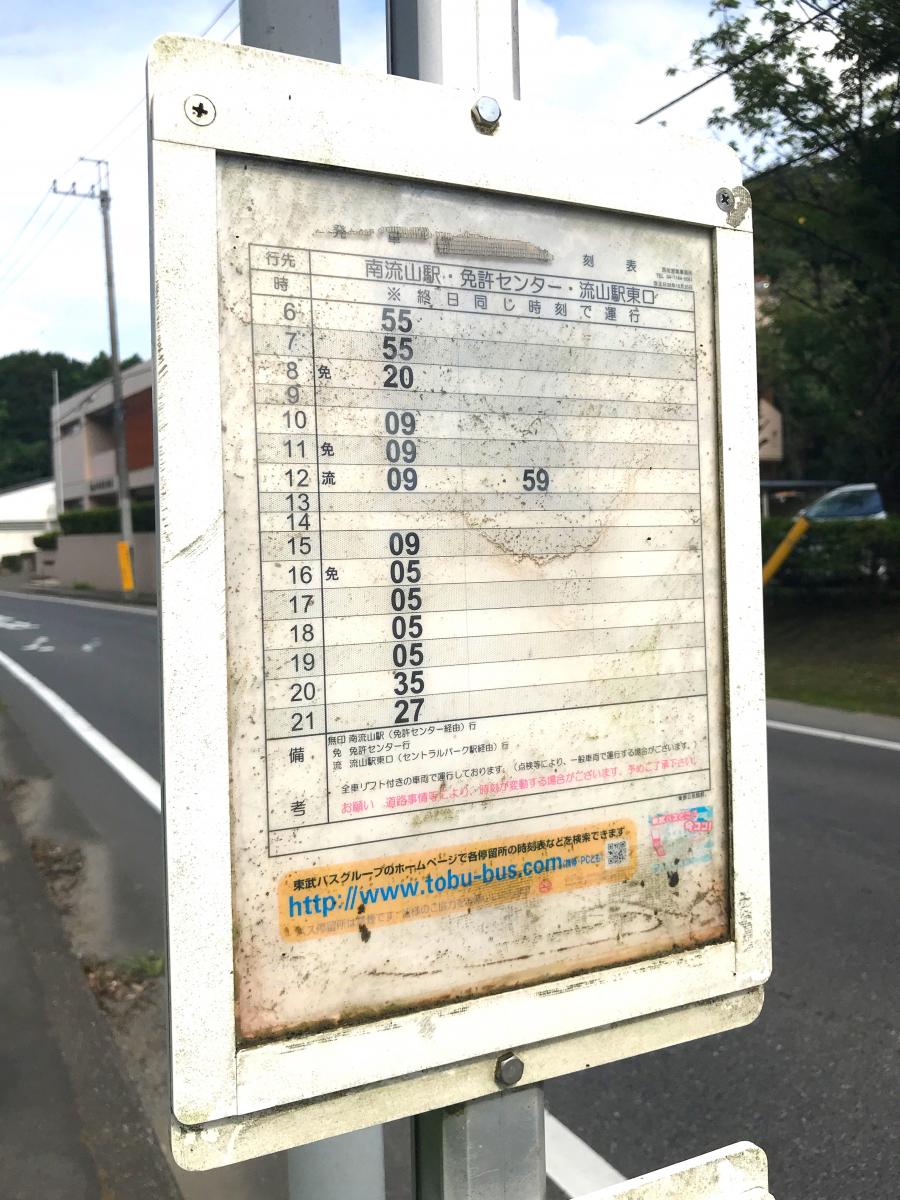 発車 刻表
行先 南流山駅・免許センター・流山駅東口
時 ※終日同じ時刻で運行
6 55
7 55
8 免 20
9
10 09
11 免 09
12 流 09 59
13
14
15 09
16 免 05
17 05
18 05
19 05
20 35
21 27
備考
無印 南流山駅（免許センター経由）行
免 免許センター行
流 流山駅東口（セントラルパーク駅経由）行
全車リフト付きの車両で運行しております。（点検等により、一般車両で運行する場合がございます。）
お願い 道路事情等により、時刻が変動する場合がございます。予めご了承下さい。
東武バスグループのホームページで各停留所の時刻表などを検索できます
http://www.tobu-bus.com 携帯・PCとも